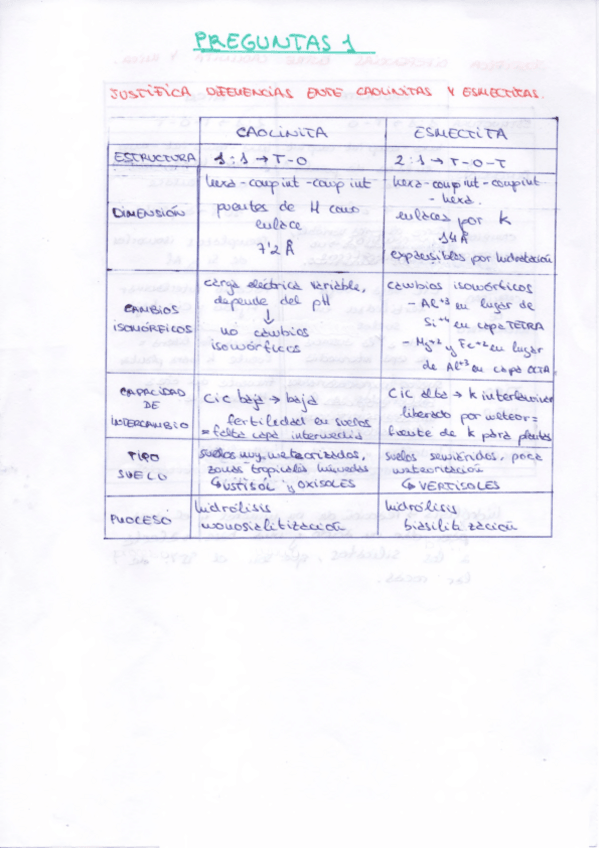 PREGUNTAS 1
JUSTIFICA DIFERENCIAS ENTE CAOLINITAS Y ESMECTITAS.
CAOLINITA
ESMECTITA
ESTRUCTURA
1:1 → T-O
2:1 → T-O-T
DIMENSIÓN
hexa-coup int-coup int
puentes de H como
enlace
7'2 Å
hexa-coup int-coup int-
-hexa.
enlaces por K
14 Å
expansibles por hidratación
CAMBIOS
ISOMÓRFICOS
carga eléctrica variable,
depende del pH
↓
no cambios
isomórficos
cambios isomórficos
- Al+3 en lugar de
Si+4 en capa TETRA
- Mg+2 y Fe+2 en lugar
de Al+3 en capa OCTA
CAPACIDAD
DE
INTERCAMBIO
Cic baja → baja
fertilidad en suelos
= falta capa intermedia
Cic alta → K interlaminar
liberado por meteor=
fuente de K para plantas
TIPO
SUELO
suelos muy meteorizados,
zonas tropicales húmedas
↳ USTISOL y OXISOLES
suelos semiáridos, poca
meteorización
↳ VERTISOLES
PROCESO
hidrólisis
monosialitización
hidrólisis
bisialitización